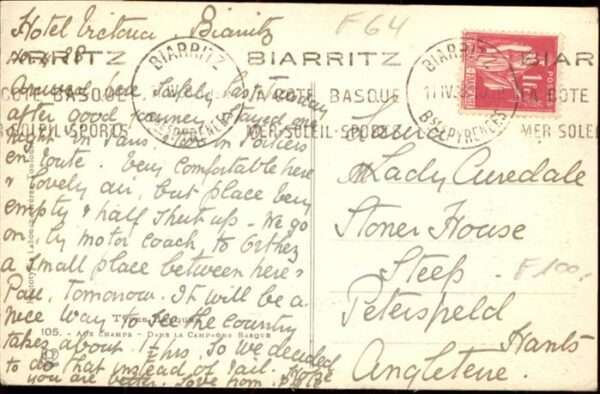 Hotel Victoria, Biarritz
F 64
BIARRITZ BIARRITZ BIARRITZ
Arrived here safely last Tuesday
CÔTE BASQUE LA CÔTE BASQUE LA CÔTE
after good journey. Stayed one
SOLEIL-SPORTS MER-SOLEIL-SPORTS MER-SOLEIL
night in Paris, in Poitiers
en route. Very comfortable here
& lovely air, but place very
empty & half shut up. We go
on by motor coach to Orthez
a small place between here &
Pau, tomorrow. It will be a
nice way to see the country
takes about 1½ hrs, so we decided
to do that instead of rail. Hope
you are better. Love from
105. - AUX CHAMPS - DANS LA CAMPAGNE BASQUE
BIARRITZ
BSES PYRENEES
BIARRITZ
17 IV 3
BSES PYRENEES
POSTES
Lady Curedale
Stoner House
Steep.
F 100,
Petersfield
Hants
Angleterre.